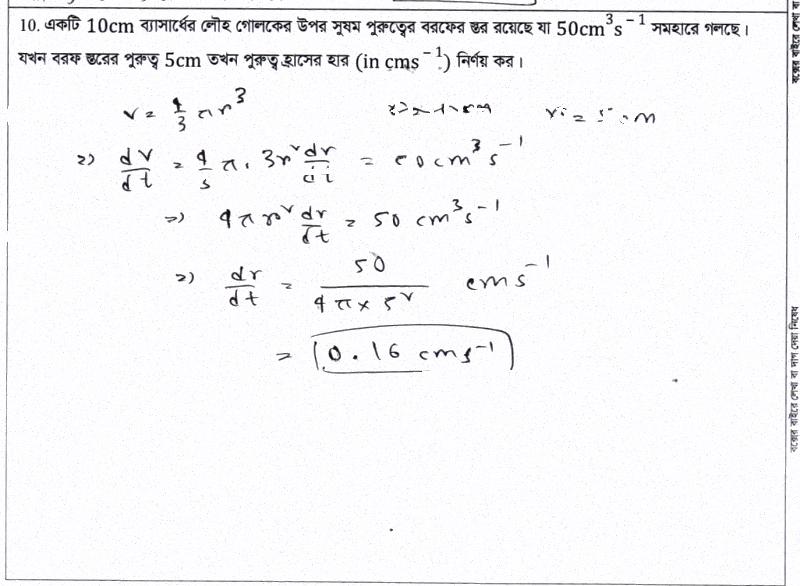 10. একটি 10cm ব্যাসার্ধের লৌহ গোলকের উপর সুষম পুরুত্বের বরফের স্তর রয়েছে যা 50cm³s⁻¹ সমহারে গলছে।
যখন বরফ স্তরের পুরুত্ব 5cm তখন পুরুত্ব হ্রাসের হার (in cms⁻¹) নির্ণয় কর।
v = 4/3 πr³
=) dv/dt = 4/3 π. 3r² dr/dt = 50cm³s⁻¹
=) 4πr² dr/dt = 50 cm³s⁻¹
=) dr/dt = 50/(4π×5²) cms⁻¹
= 0.16 cms⁻¹
বক্সের বাইরে লেখা বা দাগ দেয়া নিষেধ